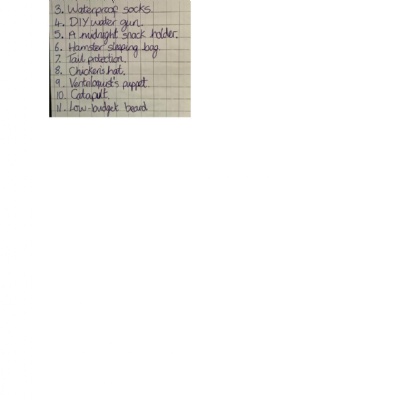 3. Waterproof socks.
4. DIY water gun.
5. A midnight snack holder.
6. Hamster sleeping bag.
7. Tail protection.
8. Chicken's hat.
9. Ventriloquist's puppet.
10. Catapult.
11. Low-budget beard.